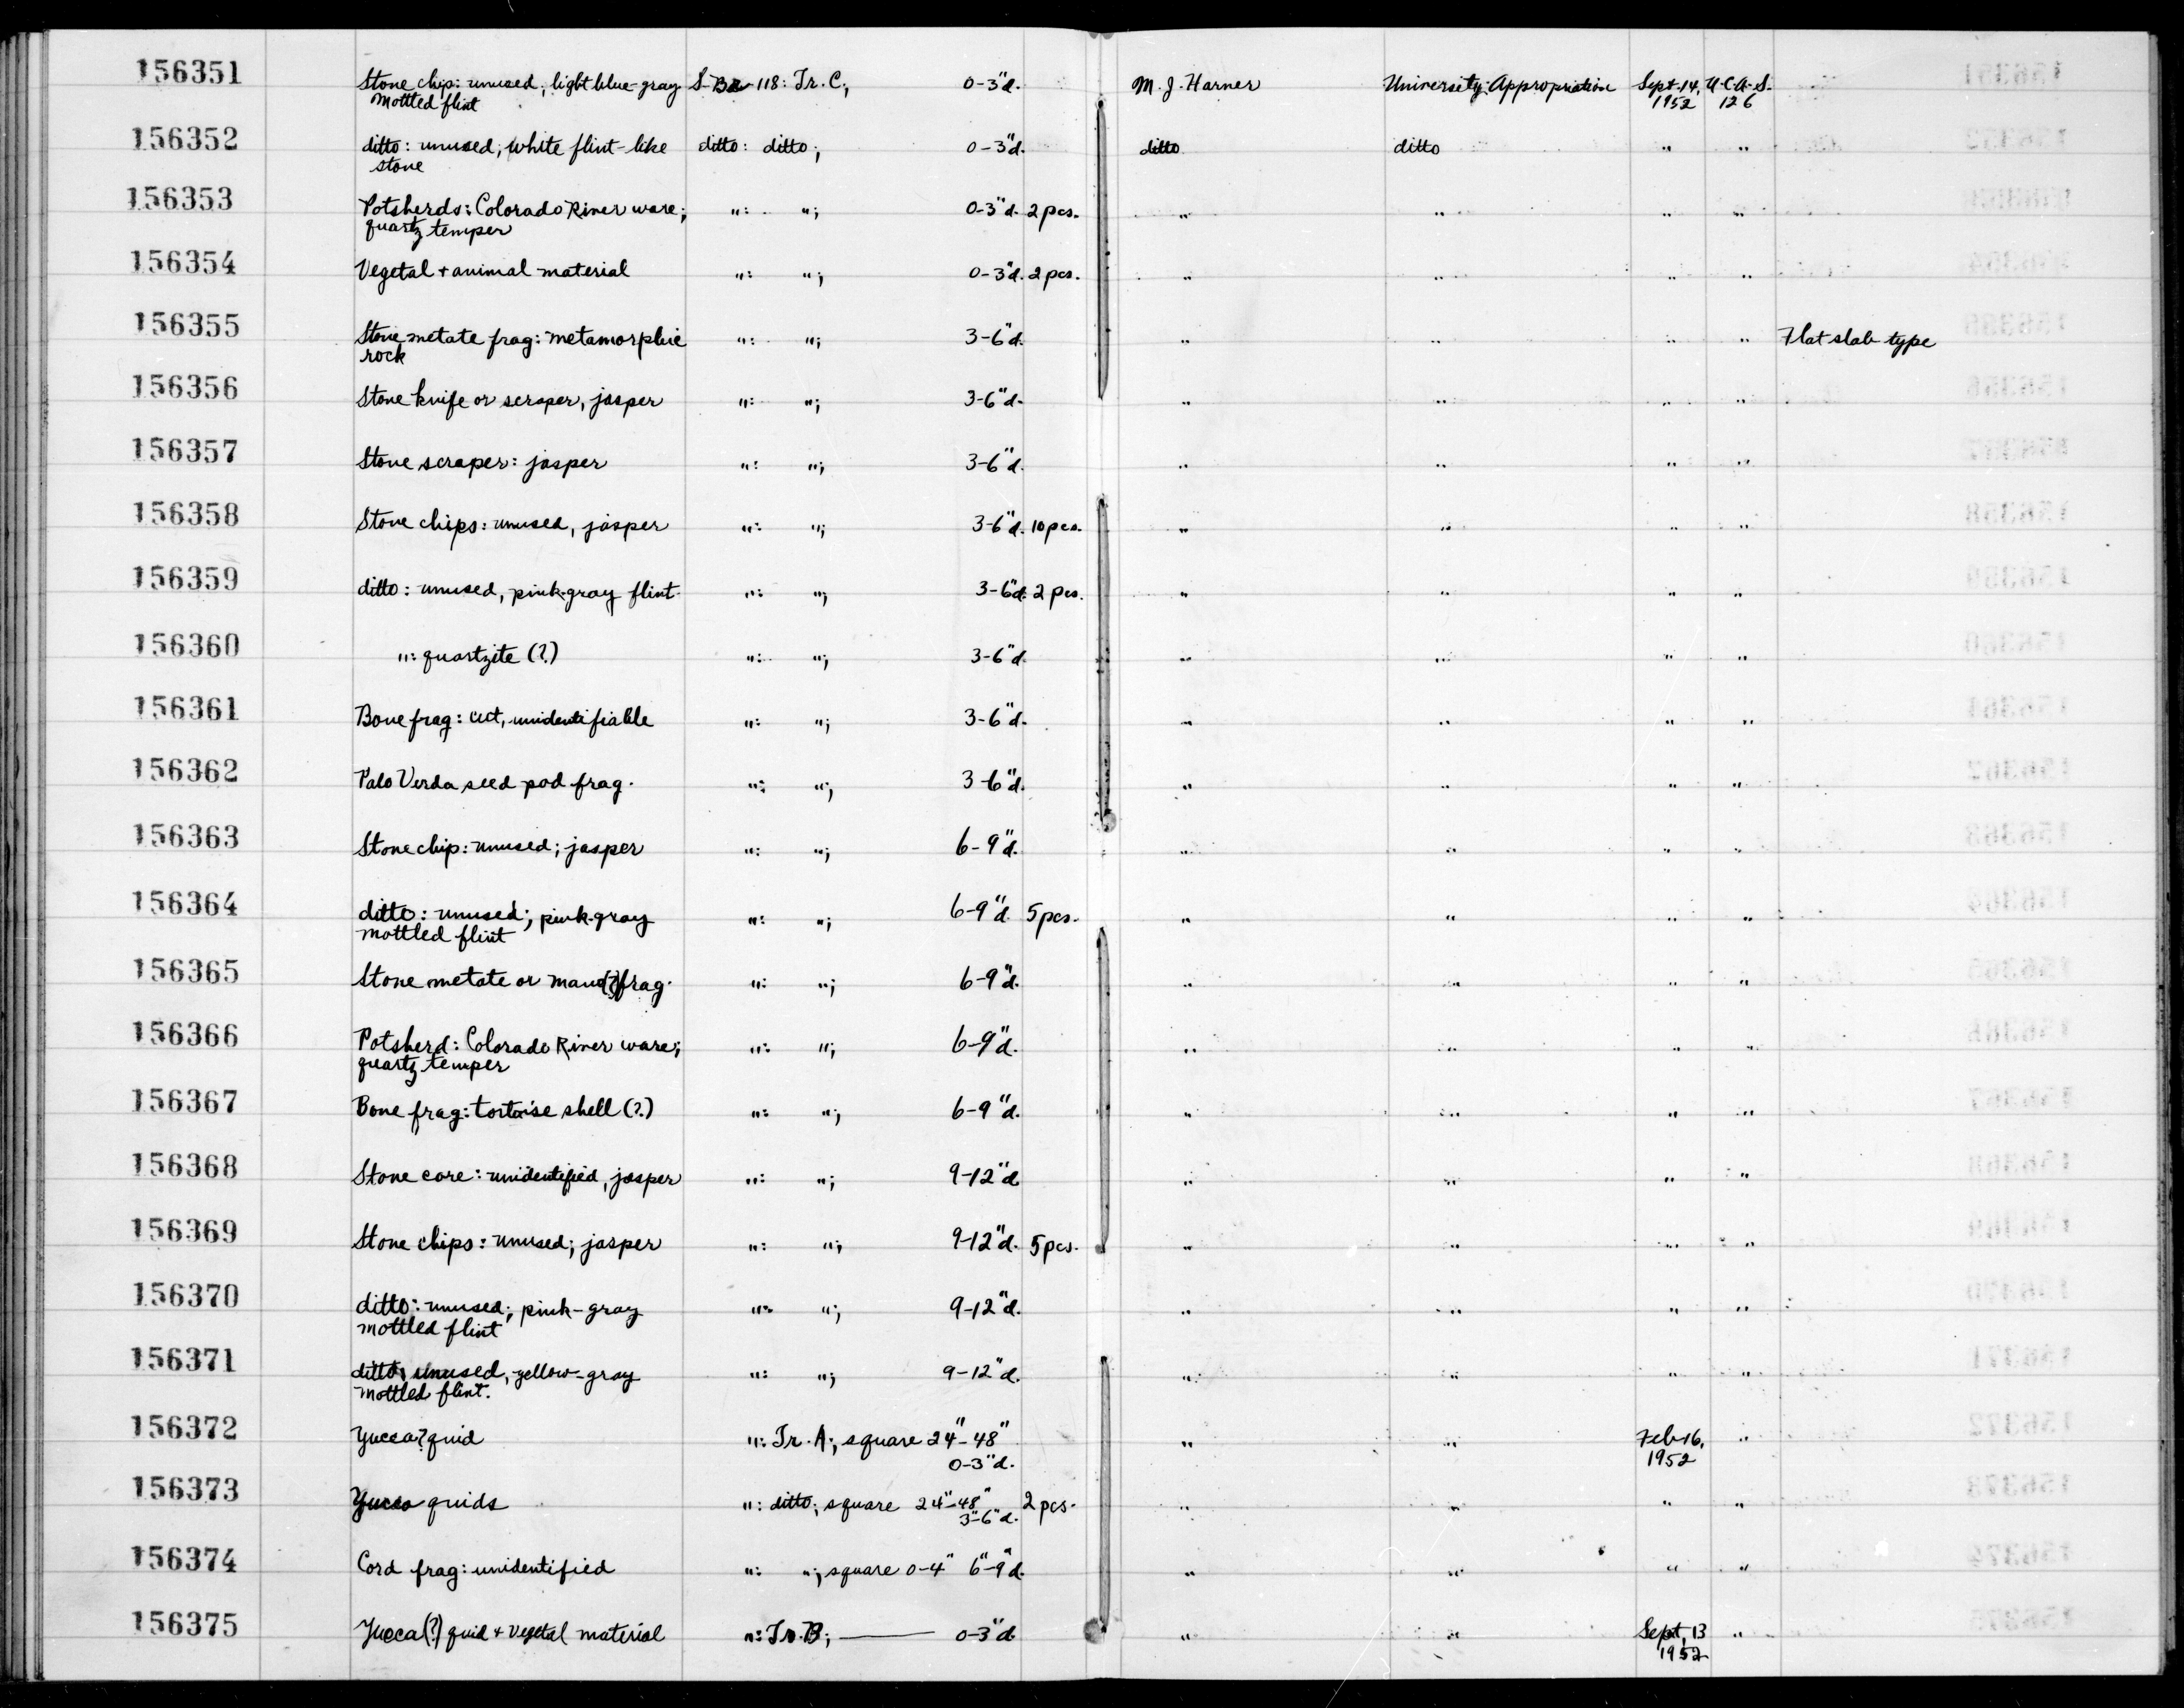 156351 Stone chip: unused; light blue-gray S-Br-118: Tr. C; 0-3"d. M. J. Harner University Appropriation Sept. 14, U.C.A.S.
mottled flint 1952 126
156352 ditto: unused; white flint-like ditto: ditto; 0-3"d. ditto ditto " "
stone
156353 Potsherds: Colorado River ware; ": "; 0-3"d. 2 pcs. " " " "
quartz temper
156354 Vegetal + animal material ": "; 0-3"d. 2 pcs. " " " "
156355 Stone metate frag: metamorphic ": "; 3-6"d. " " " " Flat slab type
rock
156356 Stone knife or scraper, jasper ": "; 3-6"d. " " " "
156357 Stone scraper: jasper ": "; 3-6"d. " " " "
156358 Stone chips: unused, jasper ": "; 3-6"d. 10 pcs. " " " "
156359 ditto: unused, pink-gray flint. ": "; 3-6"d. 2 pcs. " " " "
156360 ": quartzite (?) ": "; 3-6"d. " " " "
156361 Bone frag: cut, unidentifiable ": "; 3-6"d. " " " "
156362 Palo Verda seed pod frag. ": "; 3-6"d. " " " "
156363 Stone chip: unused; jasper ": "; 6-9"d. " " " "
156364 ditto: unused; pink-gray ": "; 6-9"d. 5 pcs. " " " "
mottled flint
156365 Stone metate or mano(?) frag. ": "; 6-9"d. " " " "
156366 Potsherd: Colorado River ware; ": "; 6-9"d. " " " "
quartz temper
156367 Bone frag: tortoise shell (?) ": "; 6-9"d. " " " "
156368 Stone core: unidentified, jasper ": "; 9-12"d. " " " "
156369 Stone chips: unused; jasper ": "; 9-12"d. 5 pcs. " " " "
156370 ditto: unused; pink-gray ": "; 9-12"d. " " " "
mottled flint
156371 ditto: unused, yellow-gray ": "; 9-12"d. " " " "
mottled flint.
156372 Yucca? quid ": Tr. A; square 24"-48" " " Feb 16, "
0-3"d. 1952
156373 Yucca quids ": ditto; square 24"-48" 2 pcs. " " " "
3"-6"d.
156374 Cord frag: unidentified ": "; square 0-4" 6"-9"d. " " " "
156375 Yucca(?) quid + vegetal material ": Tr. B; — 0-3"d. " " Sept. 13 "
1952